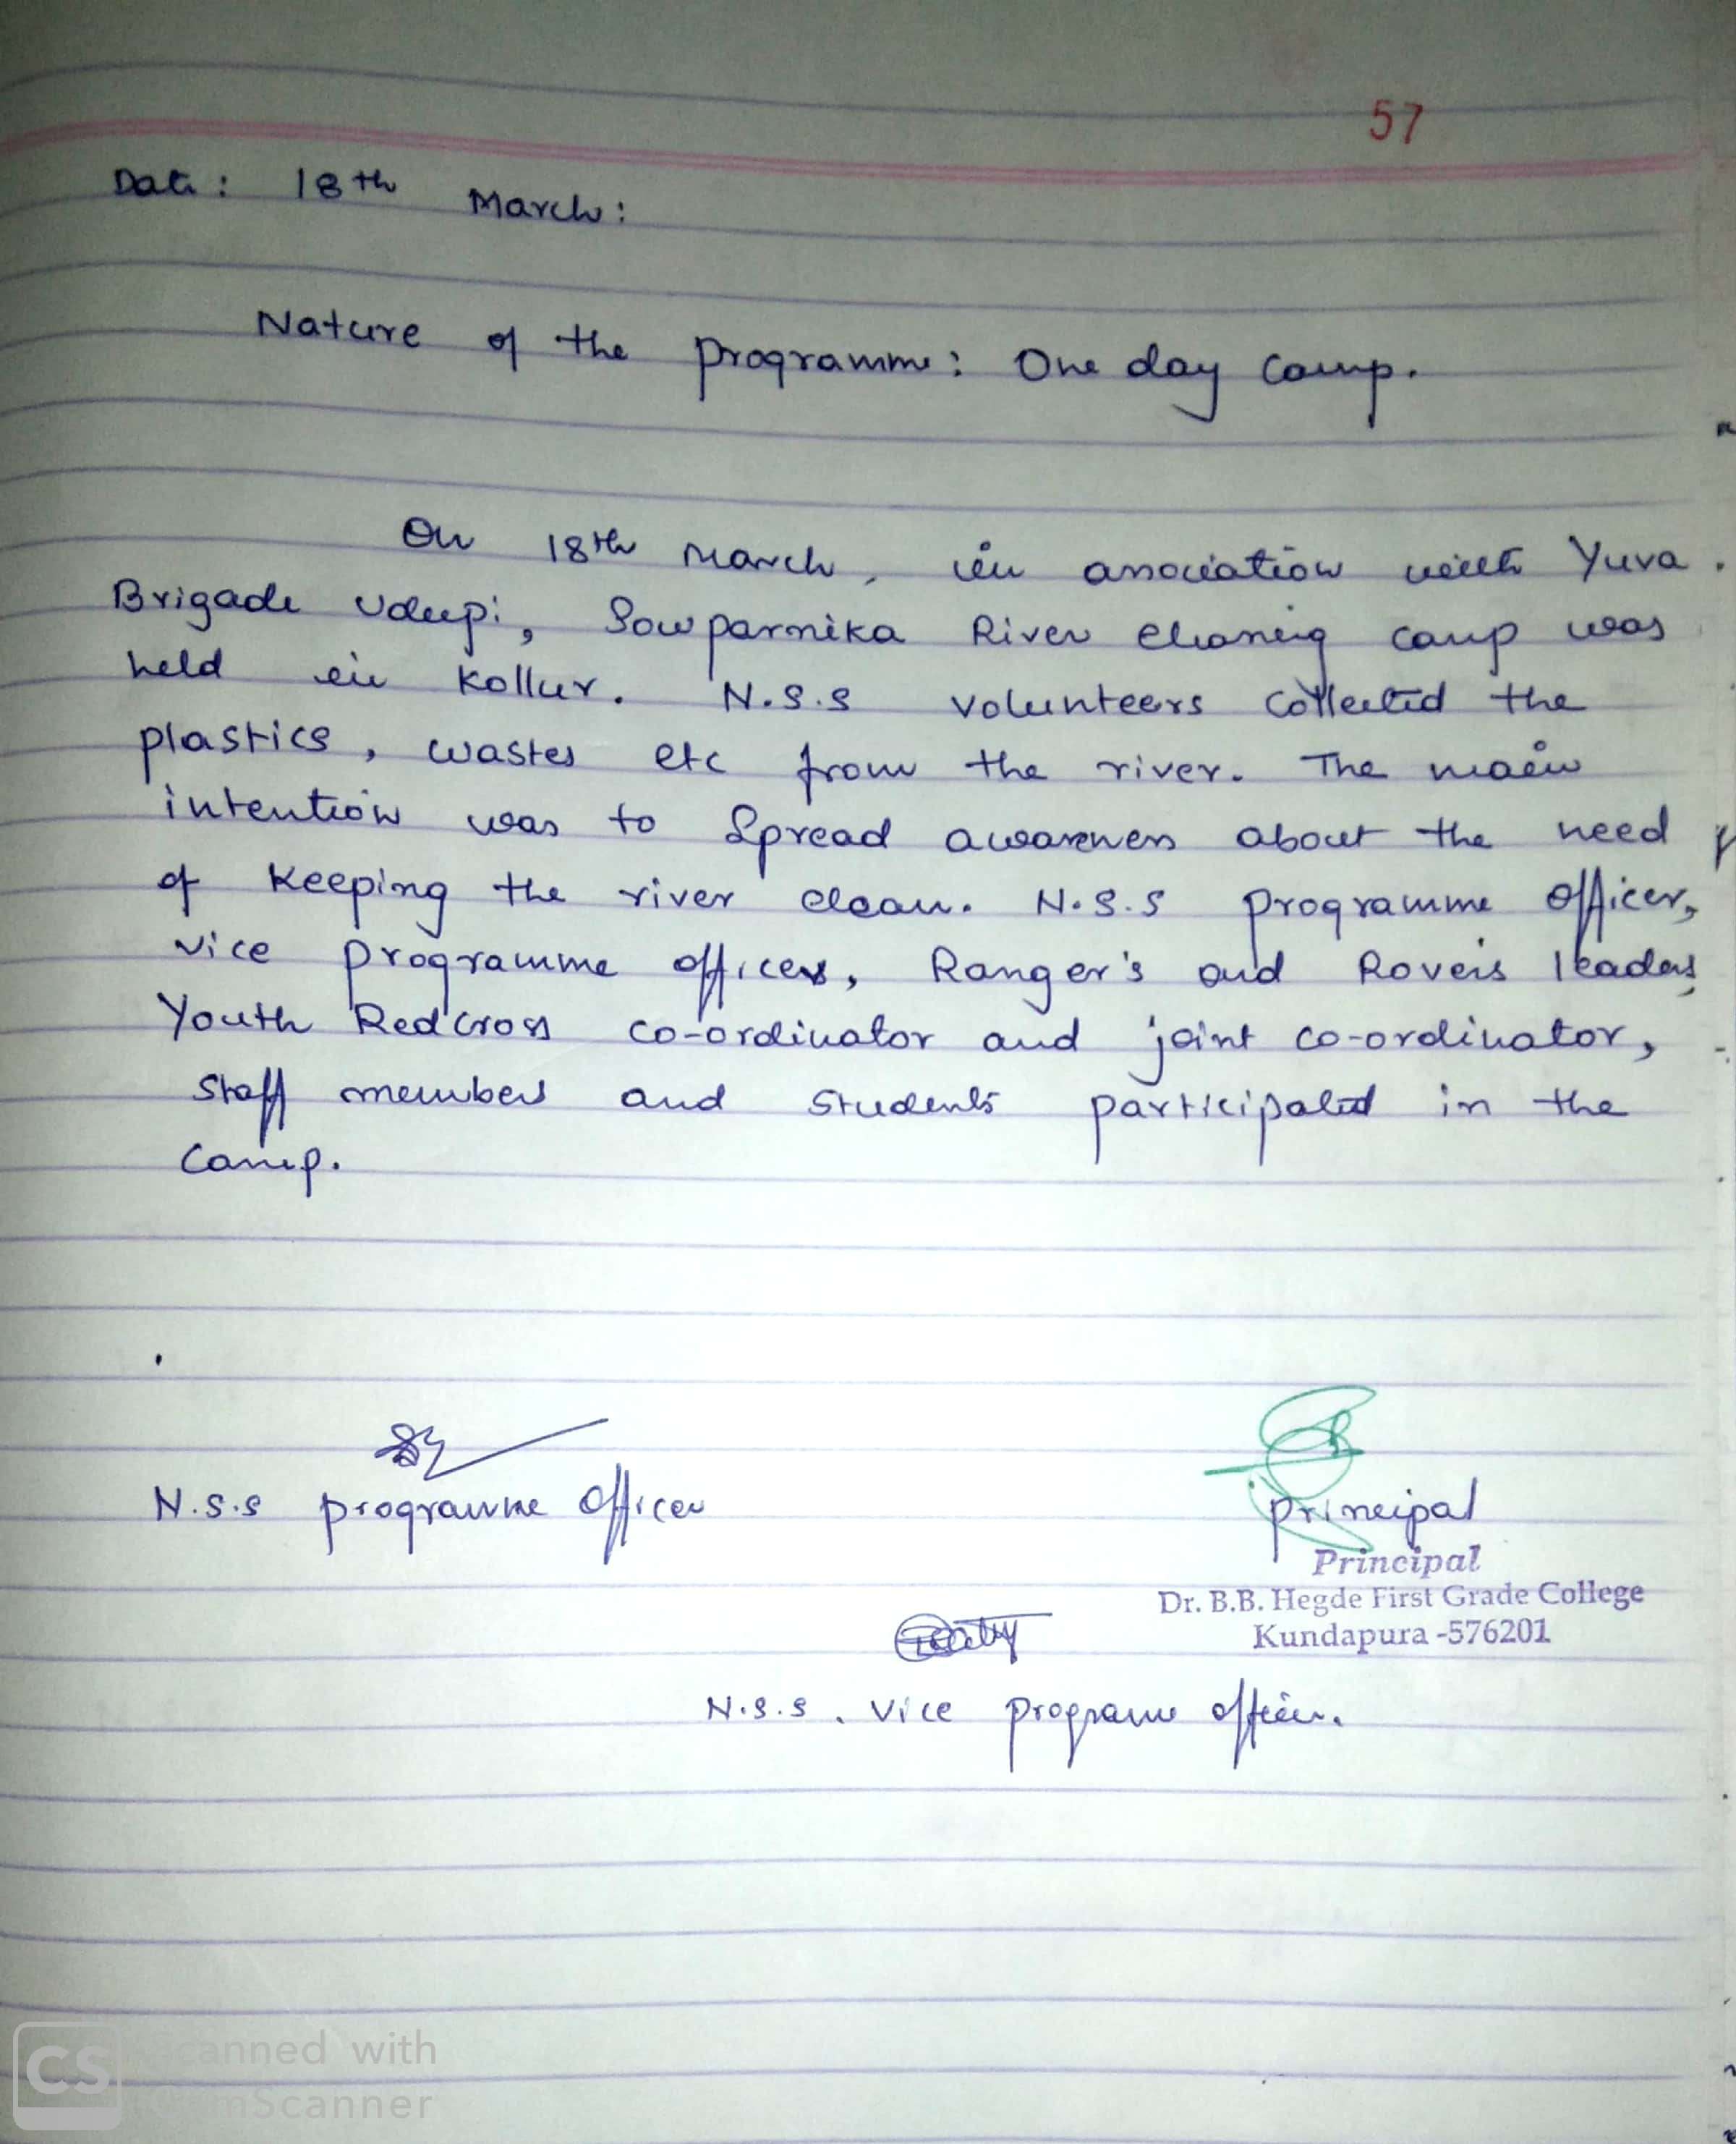 57
Date: 18th March:
Nature of the programme: One day Camp.
On 18th March, in association with Yuva
Brigade Udupi, Sowparnika River cleaning camp was
held in Kollur. N.S.S volunteers collected the
plastics, wastes etc from the river. The main
intention was to spread awareness about the need
of keeping the river clean. N.S.S programme officer,
vice programme officer, Ranger's and Rovers leaders,
Youth Redcross co-ordinator and joint co-ordinator,
Staff members and students participated in the
camp.
N.S.S programme Officer
Principal
Principal
Dr. B.B. Hegde First Grade College
Kundapura -576201
N.S.S. Vice programe officer.
CS Scanned with
CamScanner